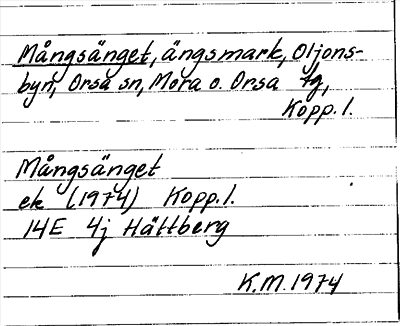 Mångsänget, ängsmark, Oljons-
byn, Orsa sn, Mora o. Orsa tg,
Kopp. l.
Mångsänget
ek (1974) Kopp. l.
14E 4j Hättberg
K.M. 1974